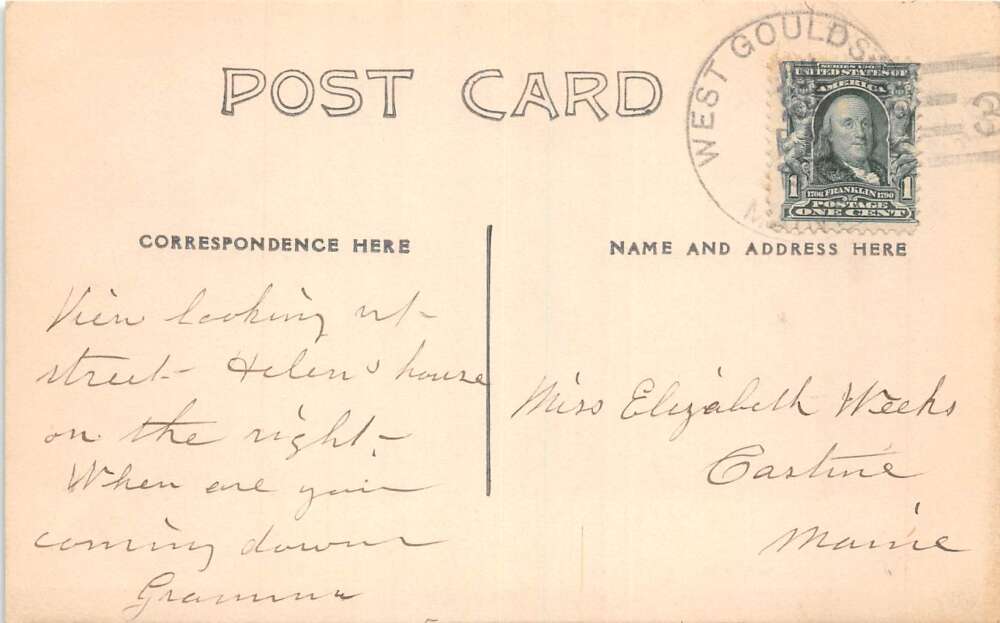 POST CARD
WEST GOULDS
M
3
SERIES 1902
UNITED STATES OF
AMERICA
1 1706 FRANKLIN 1790 1
POSTAGE
ONE CENT
CORRESPONDENCE HERE
NAME AND ADDRESS HERE
View looking up
street - Helen's house
on the right -
When are you
coming down
Gramma
Miss Elizabeth Weeks
Castine
Maine